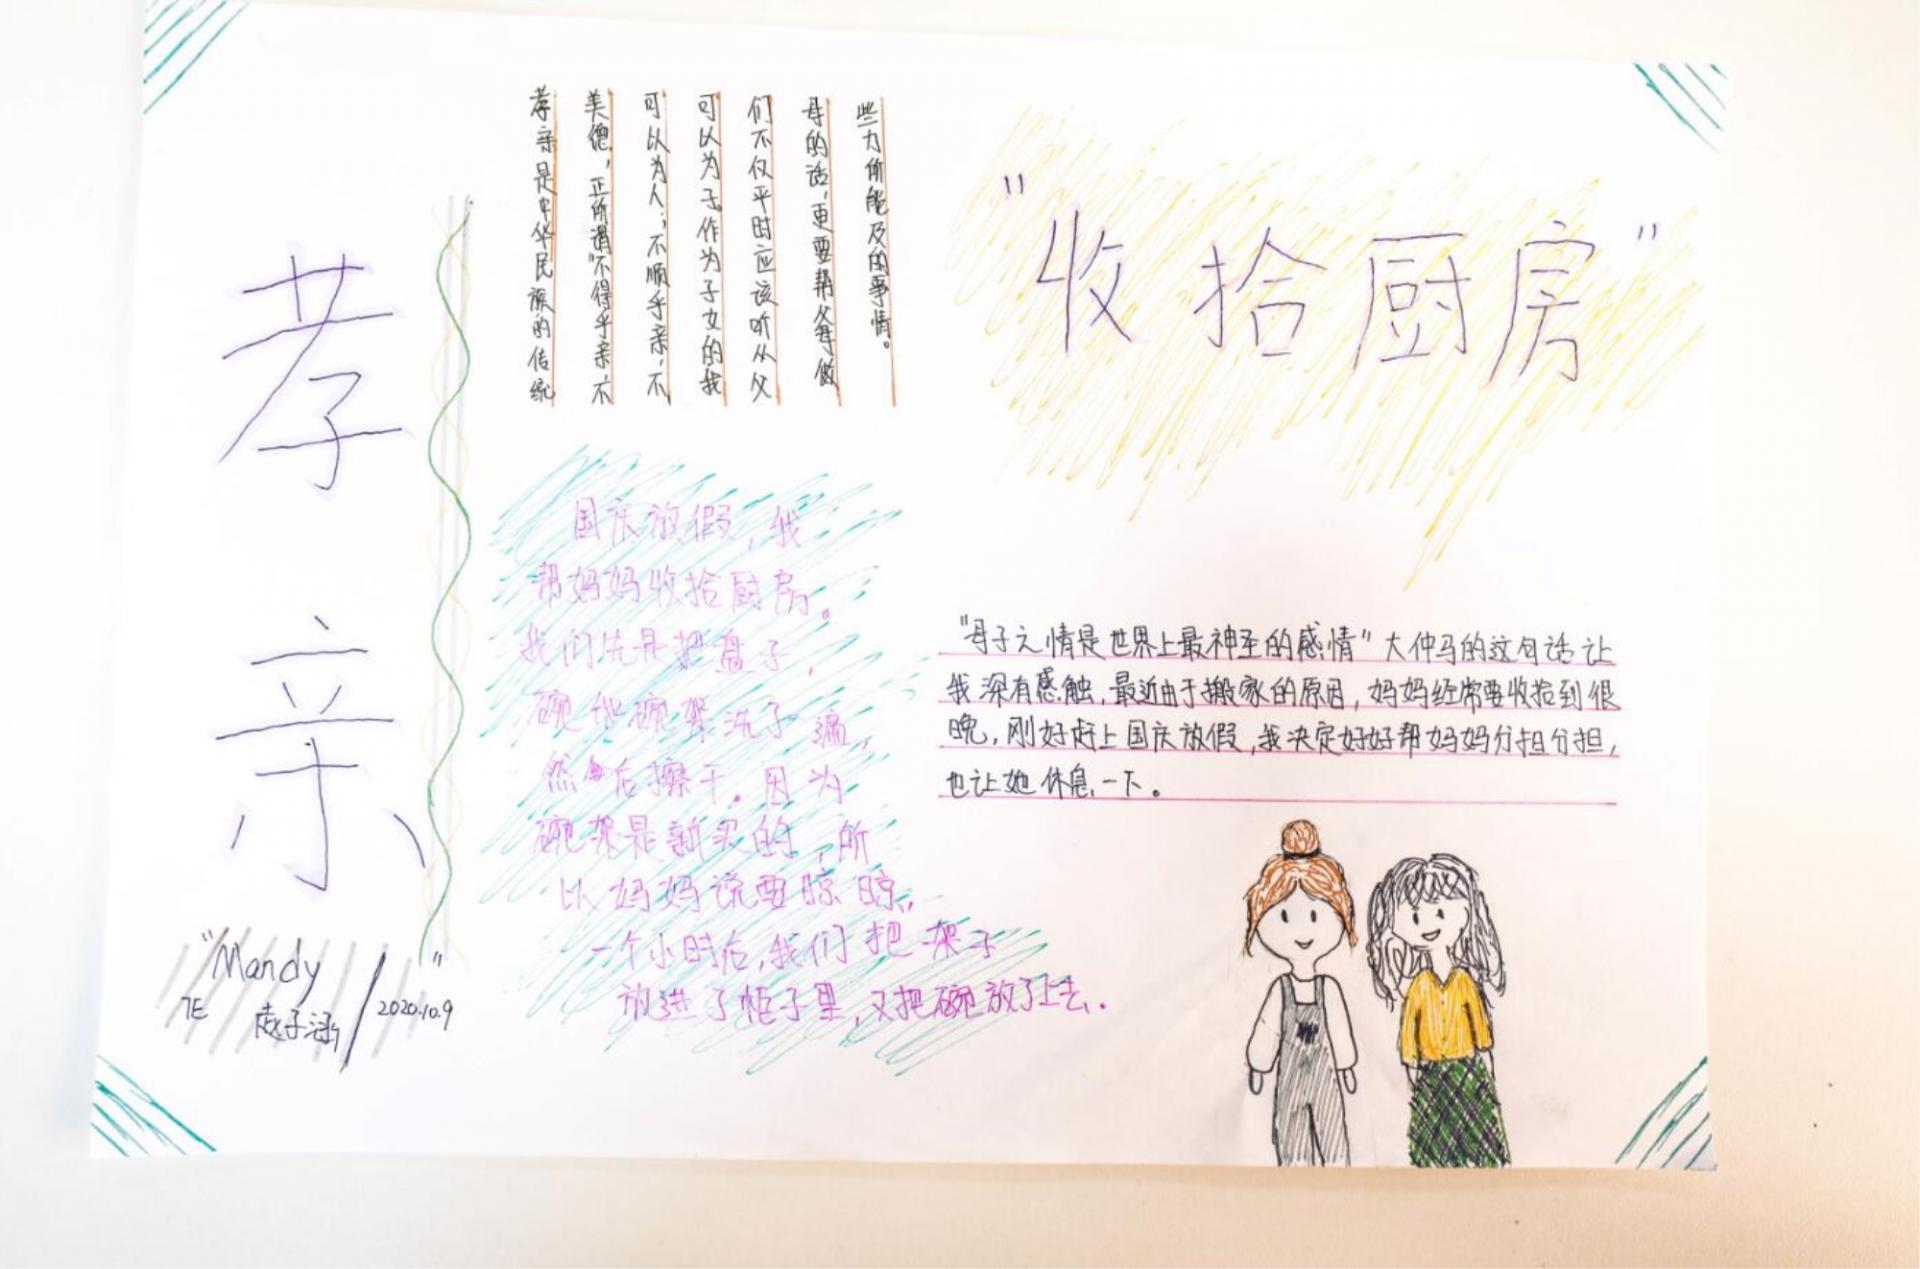 孝亲
"Mandy"
7E
赵子涵
2020.10.9
孝亲是中华民族的传统
美德，正所谓"不得乎亲，不
可以为人；不顺乎亲，不
可以为子。作为子女的我
们不仅平时应该听从父
母的话，更要帮父母做
些力所能及的事情。
国庆放假，我
帮妈妈收拾厨房。
我们先是把盘子，
碗和碗架洗了一遍，
然后擦干。因为
碗架是新买的，所
以妈妈说要晾晾，
一个小时后，我们把架子
放进了柜子里，又把碗放了上去.
"收拾厨房"
"母子之情是世界上最神圣的感情"大仲马的这句话让
我深有感触，最近由于搬家的原因，妈妈经常要收拾到很
晚，刚好赶上国庆放假，我决定好好帮妈妈分担分担，
也让她休息一下。